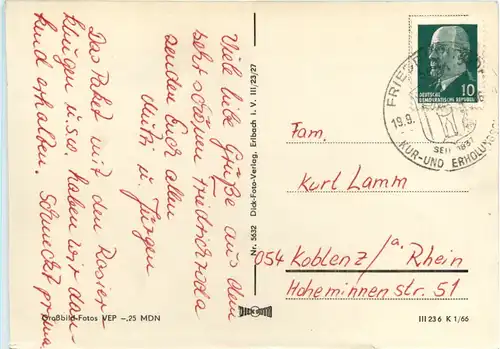 Viele liebe Grüße aus dem
sehr schönen Friedrichroda
senden Euch allen
Mutti u. Jürgen
Das Paket mit den Rasier-
klingen u.s.w. haben wir dan-
kend erhalten. Schmeckt prima
Großbild-Fotos VEP -,25 MDN
Nr. 5632 Dick-Foto-Verlag, Erlbach i. V. III/23/27
DICK FOTO
DEUTSCHE
DEMOKRATISCHE REPUBLIK
10
19.9.
SEIT 1837
KUR-UND ERHOLUNGSO
Fam.
Kurt Lamm
054 Koblenz / a. Rhein
Hoheminnenstr. 51
III 23 6 K 1/66